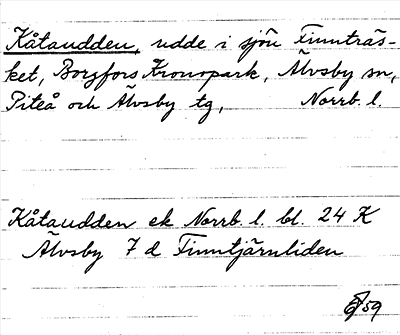 Kåtaudden, udde i sjön Finnträs-
ket, Borgfors Kronopark, Älvsby sn,
Piteå och Älvsby tg, Norrb. l.
Kåtaudden ek Norrb. l. bl. 24 K
Älvsby 7 d Finntjärnliden
59